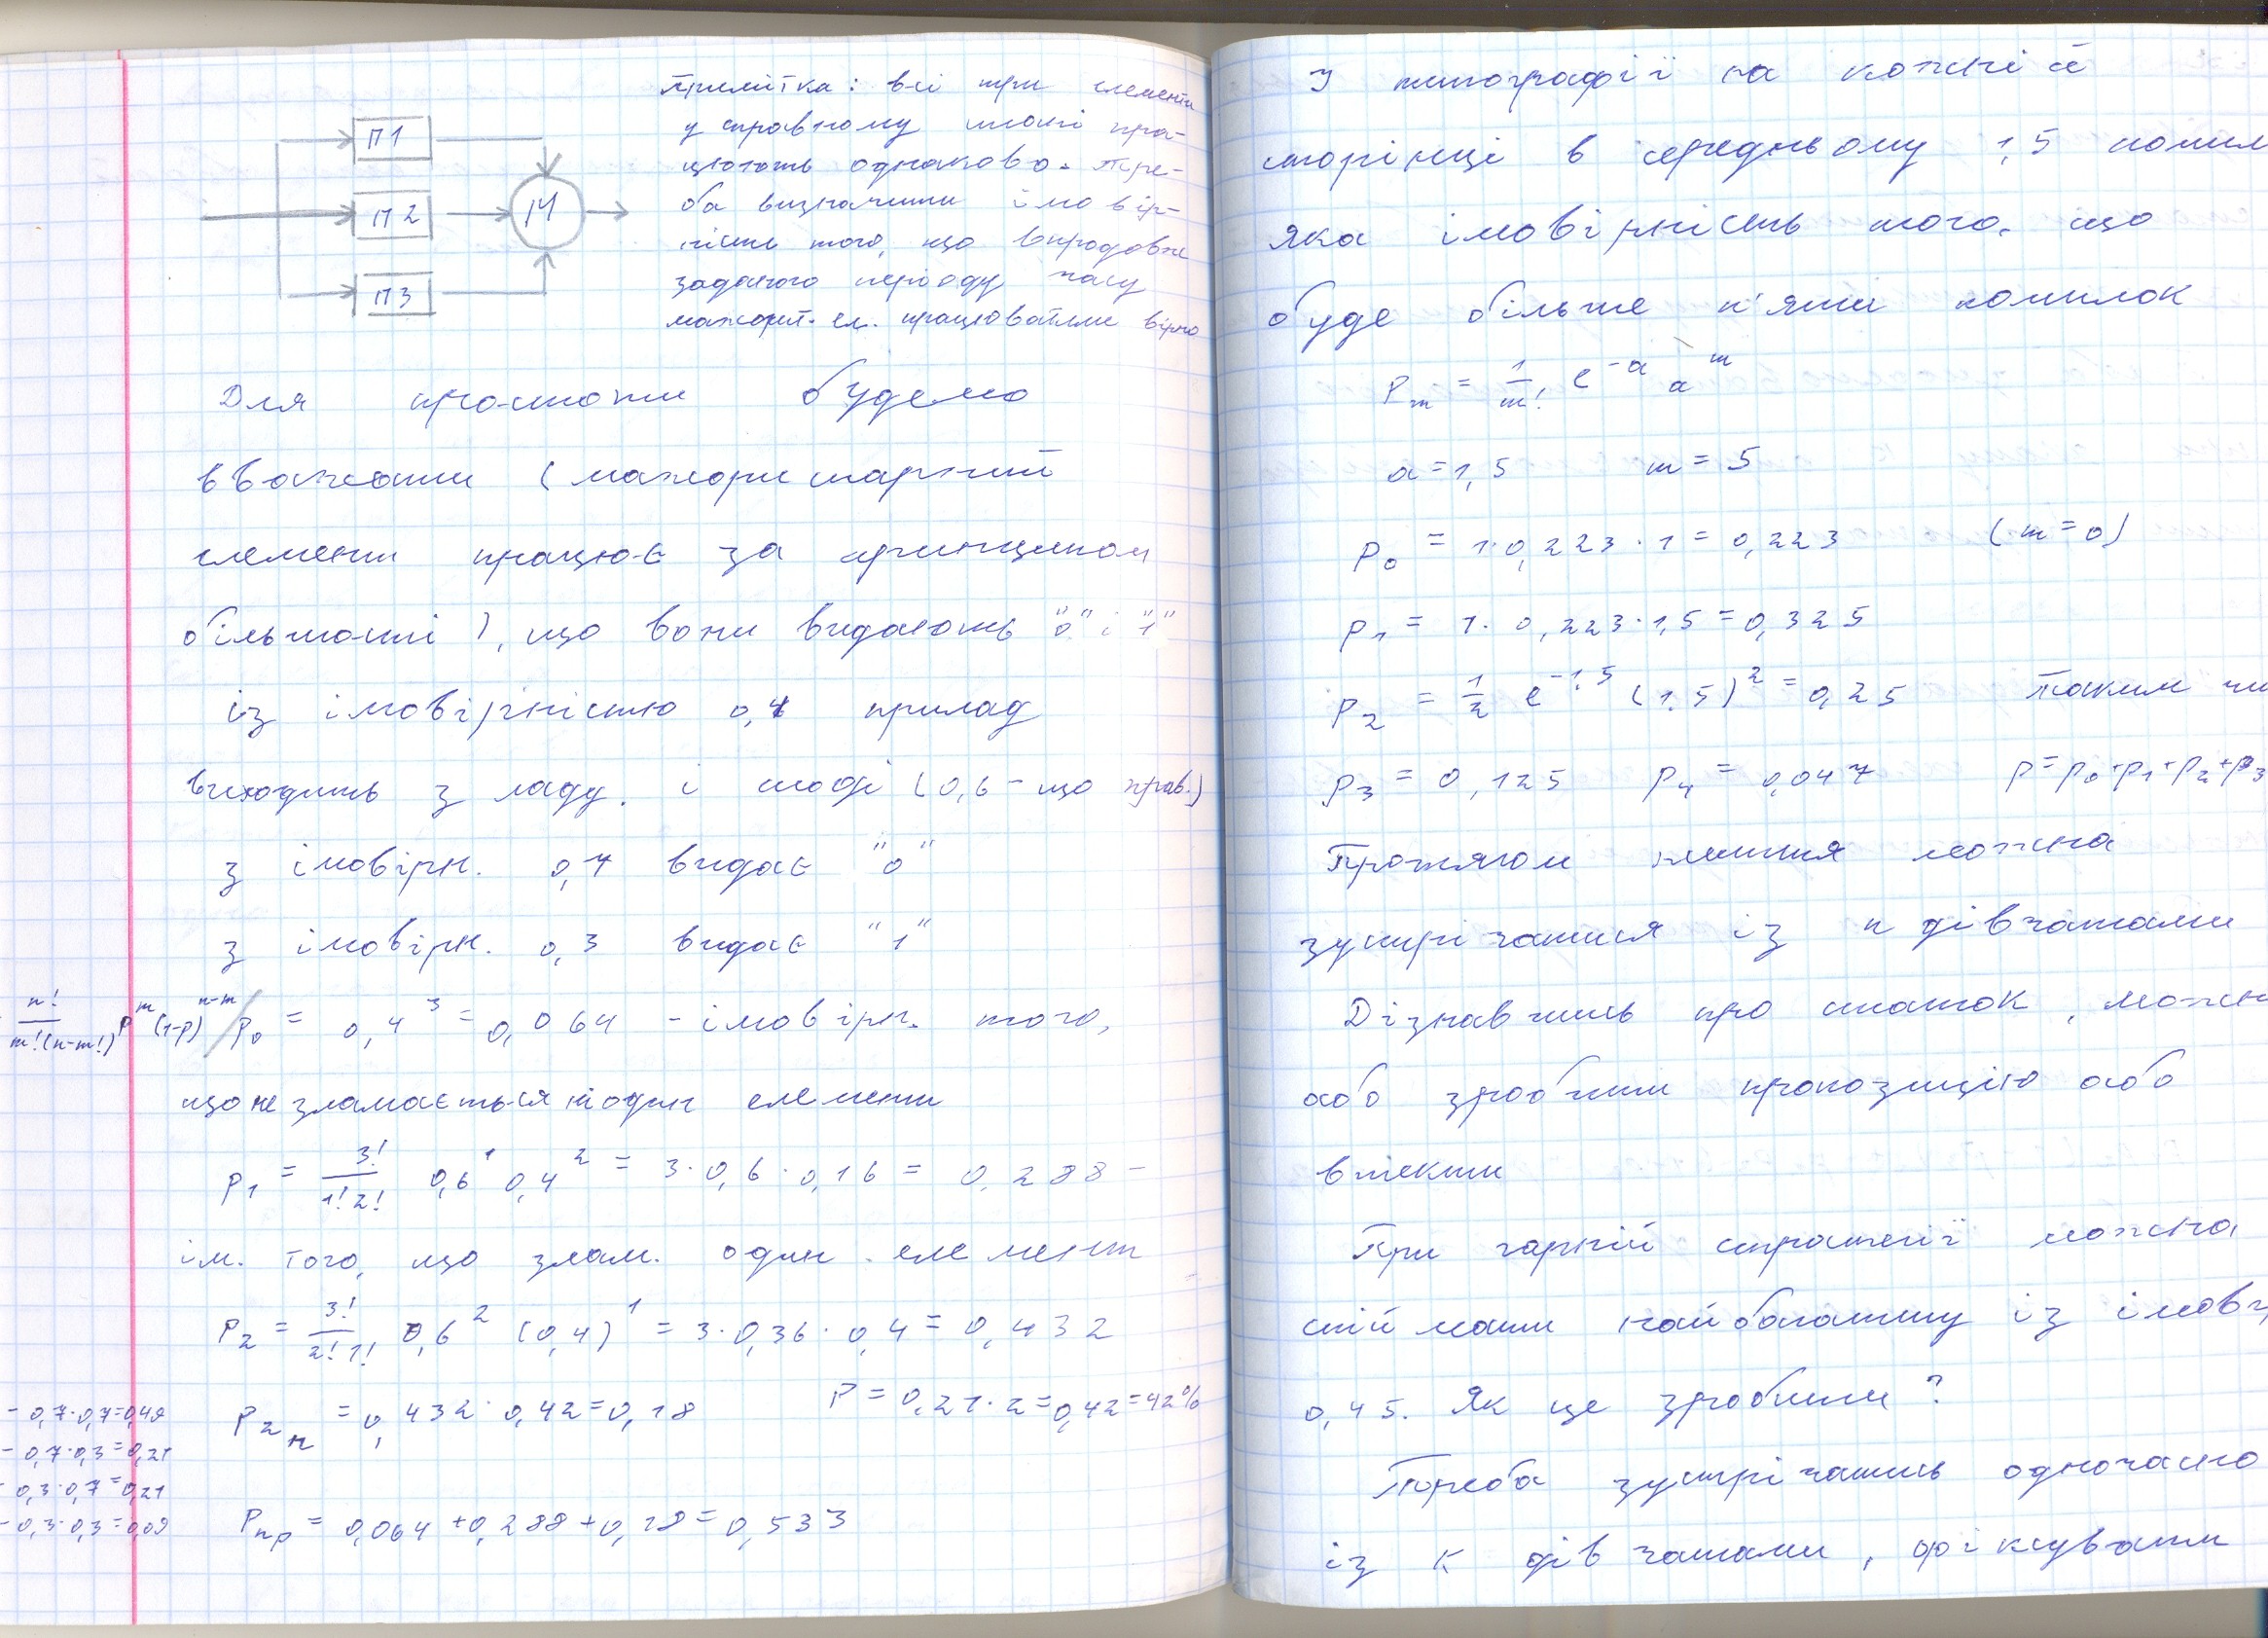 Примітка: всі три елементи
у справному стані пра-
цюють однаково. Тре-
ба визначити імовір-
ність того, що впродовж
заданого періоду часу
мажорит. ел. працюватиме вірно
П1
П2
П3
М
Для простоти будемо
вважати (мажоритарний
елемент працює за принципом
більшості), що вони видають "0" і "1"
із імовірністю 0,4 прилад
виходить з ладу. і тоді (0,6 - що прав.)
з імовірн. 0,7 видає "0"
з імовірн. 0,3 видає "1"
n!/m!(n-m!) p^m (1-p)^n-m / P₀ = 0,4³ = 0,064 - імовірн. того,
що не зламається ні один елемент
P₁ = 3!/1!2! 0,6¹ 0,4² = 3·0,6·0,16 = 0,288 -
ім. того, що злам. один елемент
P₂ = 3!/2!1! 0,6² (0,4)¹ = 3·0,36·0,4 = 0,432
- 0,7·0,7=0,49
P₂ₙ = 0,432·0,42=0,18 P=0,21·2=0,42=42%
- 0,7·0,3=0,21
- 0,3·0,7=0,21
- 0,3·0,3=0,09
Pпр = 0,064+0,288+0,18=0,533
У типографії на кожній
сторінці в середньому 1,5 помил
яка імовірність того, що
буде більше п'яти помилок
Pm = 1/m! e^-a a^m
a=1,5 m=5
P₀ = 1·0,223·1=0,223 (m=0)
P₁ = 1·0,223·1,5=0,325
P₂ = 1/2 e^-1,5 (1,5)² = 0,25 Таким чи
P₃ = 0,125 P₄ = 0,047 P=P₀+P₁+P₂+P₃
Протягом життя можна
зустрічатися із n дівчатами
Дізнавшись про статок, можн
або зробити пропозицію або
втекти
При гарній стратегії можна
спіймати найбагатшу із імовір
0,45. Як це зробити?
Треба зустрічатись одночасно
із k дівчатами, фіксувати